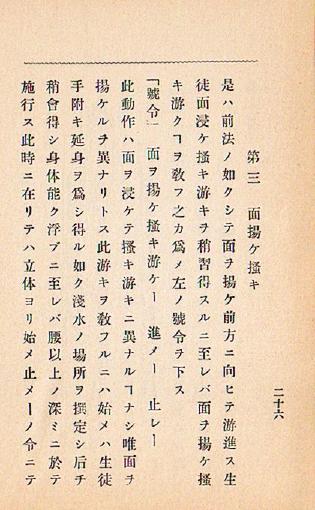 第三　面揚ケ搔キ
是ハ前法ノ如クシテ面ヲ揚ケ前方ニ向ヒテ游進ス生
徒面浸ケ搔キ游キヲ稍習得スルニ至レバ面ヲ揚ケ搔
キ游クヿヲ敎フ之カ爲メ左ノ號令ヲ下ス
「號令」　面ヲ揚ケ搔キ游ケー　進メー　止レー
此動作ハ面ヲ浸ケテ搔キ游キニ異ナルヿナシ唯面ヲ
揚ケルヲ異ナリトス此游キヲ敎フルニハ始メハ生徒
手附キ延身ヲ爲シ得ル如ク淺水ノ場所ヲ撰定シ后チ
稍會得シ身体能ク浮ブニ至レバ腰以上ノ深ミニ於テ
施行ス此時ニ在リテハ立体ヨリ始メ止メーノ令ニテ
二十六